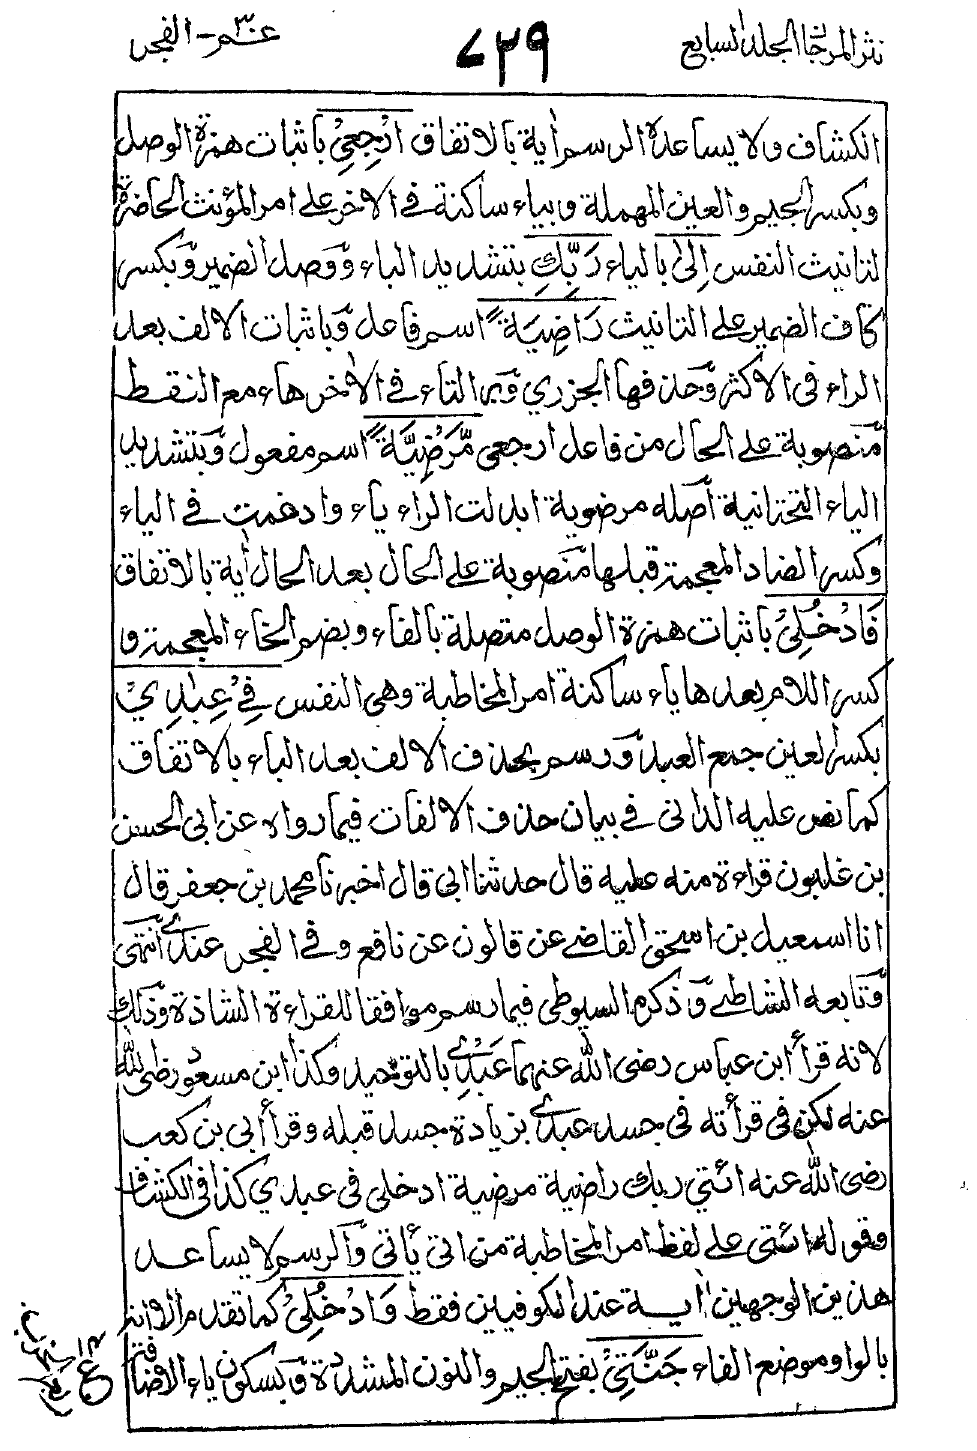 نثر المرجان الجلد السابع
٧٣٩
عـــم - الفجر
الكشاف ولا يساعده الرسم أية بالاتفاق ارْجِعِيْ باثبات همزة الوصل
وبكسر الجيم والعين المهملة وبياء ساكنة في الاخر على امر المؤنث الحاضرة
لتانيث النفس اِلىٰ بالياء رَبِّكِ بتشديد الباء وَوصل الضمير وَبكسر
كاف الضمير على التانيث رَاضِيَةً اسم فاعل وَباثبات الالف بعد
الراء في الاكثر وَحذفها الجزري وَبر التاء في الاخر هاء مع النقط
مَنصوبة على الحال من فاعل ارجعي مَّرْضِيَّةً اسم مفعول وَبتشديد
الياء التحتانية اَصله مرضوية ابدلت الراء ياء وادغمت في الياء
وكسر الضاد المعجمة قبلها مَنصوبة على الحال بعد الحال أية بالاتفاق
فَادْخُلِيْ باثبات همزة الوصل متصلة بالفاء وبضم الخاء المعجمة و
كسر اللام بعدها ياء ساكنة امر المخاطبة وهي النفس فِيْ عِبٰدِيْ
بكسر العين جمع العبد وَرسم بحذف الالف بعد الباء بالاتفاق
كما نص عليه الداني في بيان حذف الالفات فيما رواه عن ابي الحسن
بن غلبون قراءة منه عليه قال حدثنا ابي قال اخبرنا محمد بن جعفر قال
انا اسمعيل بن اسحق القاضي عن قالون عن نافع وفي الفجر عبدي اَنتهى
وَتابعه الشاطبي وَذكره السيوطي فيما رسم موافقا للقراءة الشاذة وَذلك
لانه قرأ ابن عباس رضى الله عنهما عَبْدِيْ بالتوحيد وكذا ابن مسعود رضى الله
عنه لكن في قرأته في جسد عبدي بزيادة جسد قبله وقرأ ابي بن كعب
رضى الله عنه ائتي ربك راضية مرضية ادخلي في عبدي كذا في الكشاف
وقوله ائتي على لفظ امر المخاطبة من اتى يأتي وَالرسم لا يساعد
هذين الوجهين اٰيـــة عند الكوفيين فقط وَادْخُلِيْ كما تقدم الا انه
بالواو موضع الفاء جَنَّتِيْ بفتح الجيم والنون المشددة وَبسكون ياء الاضافة